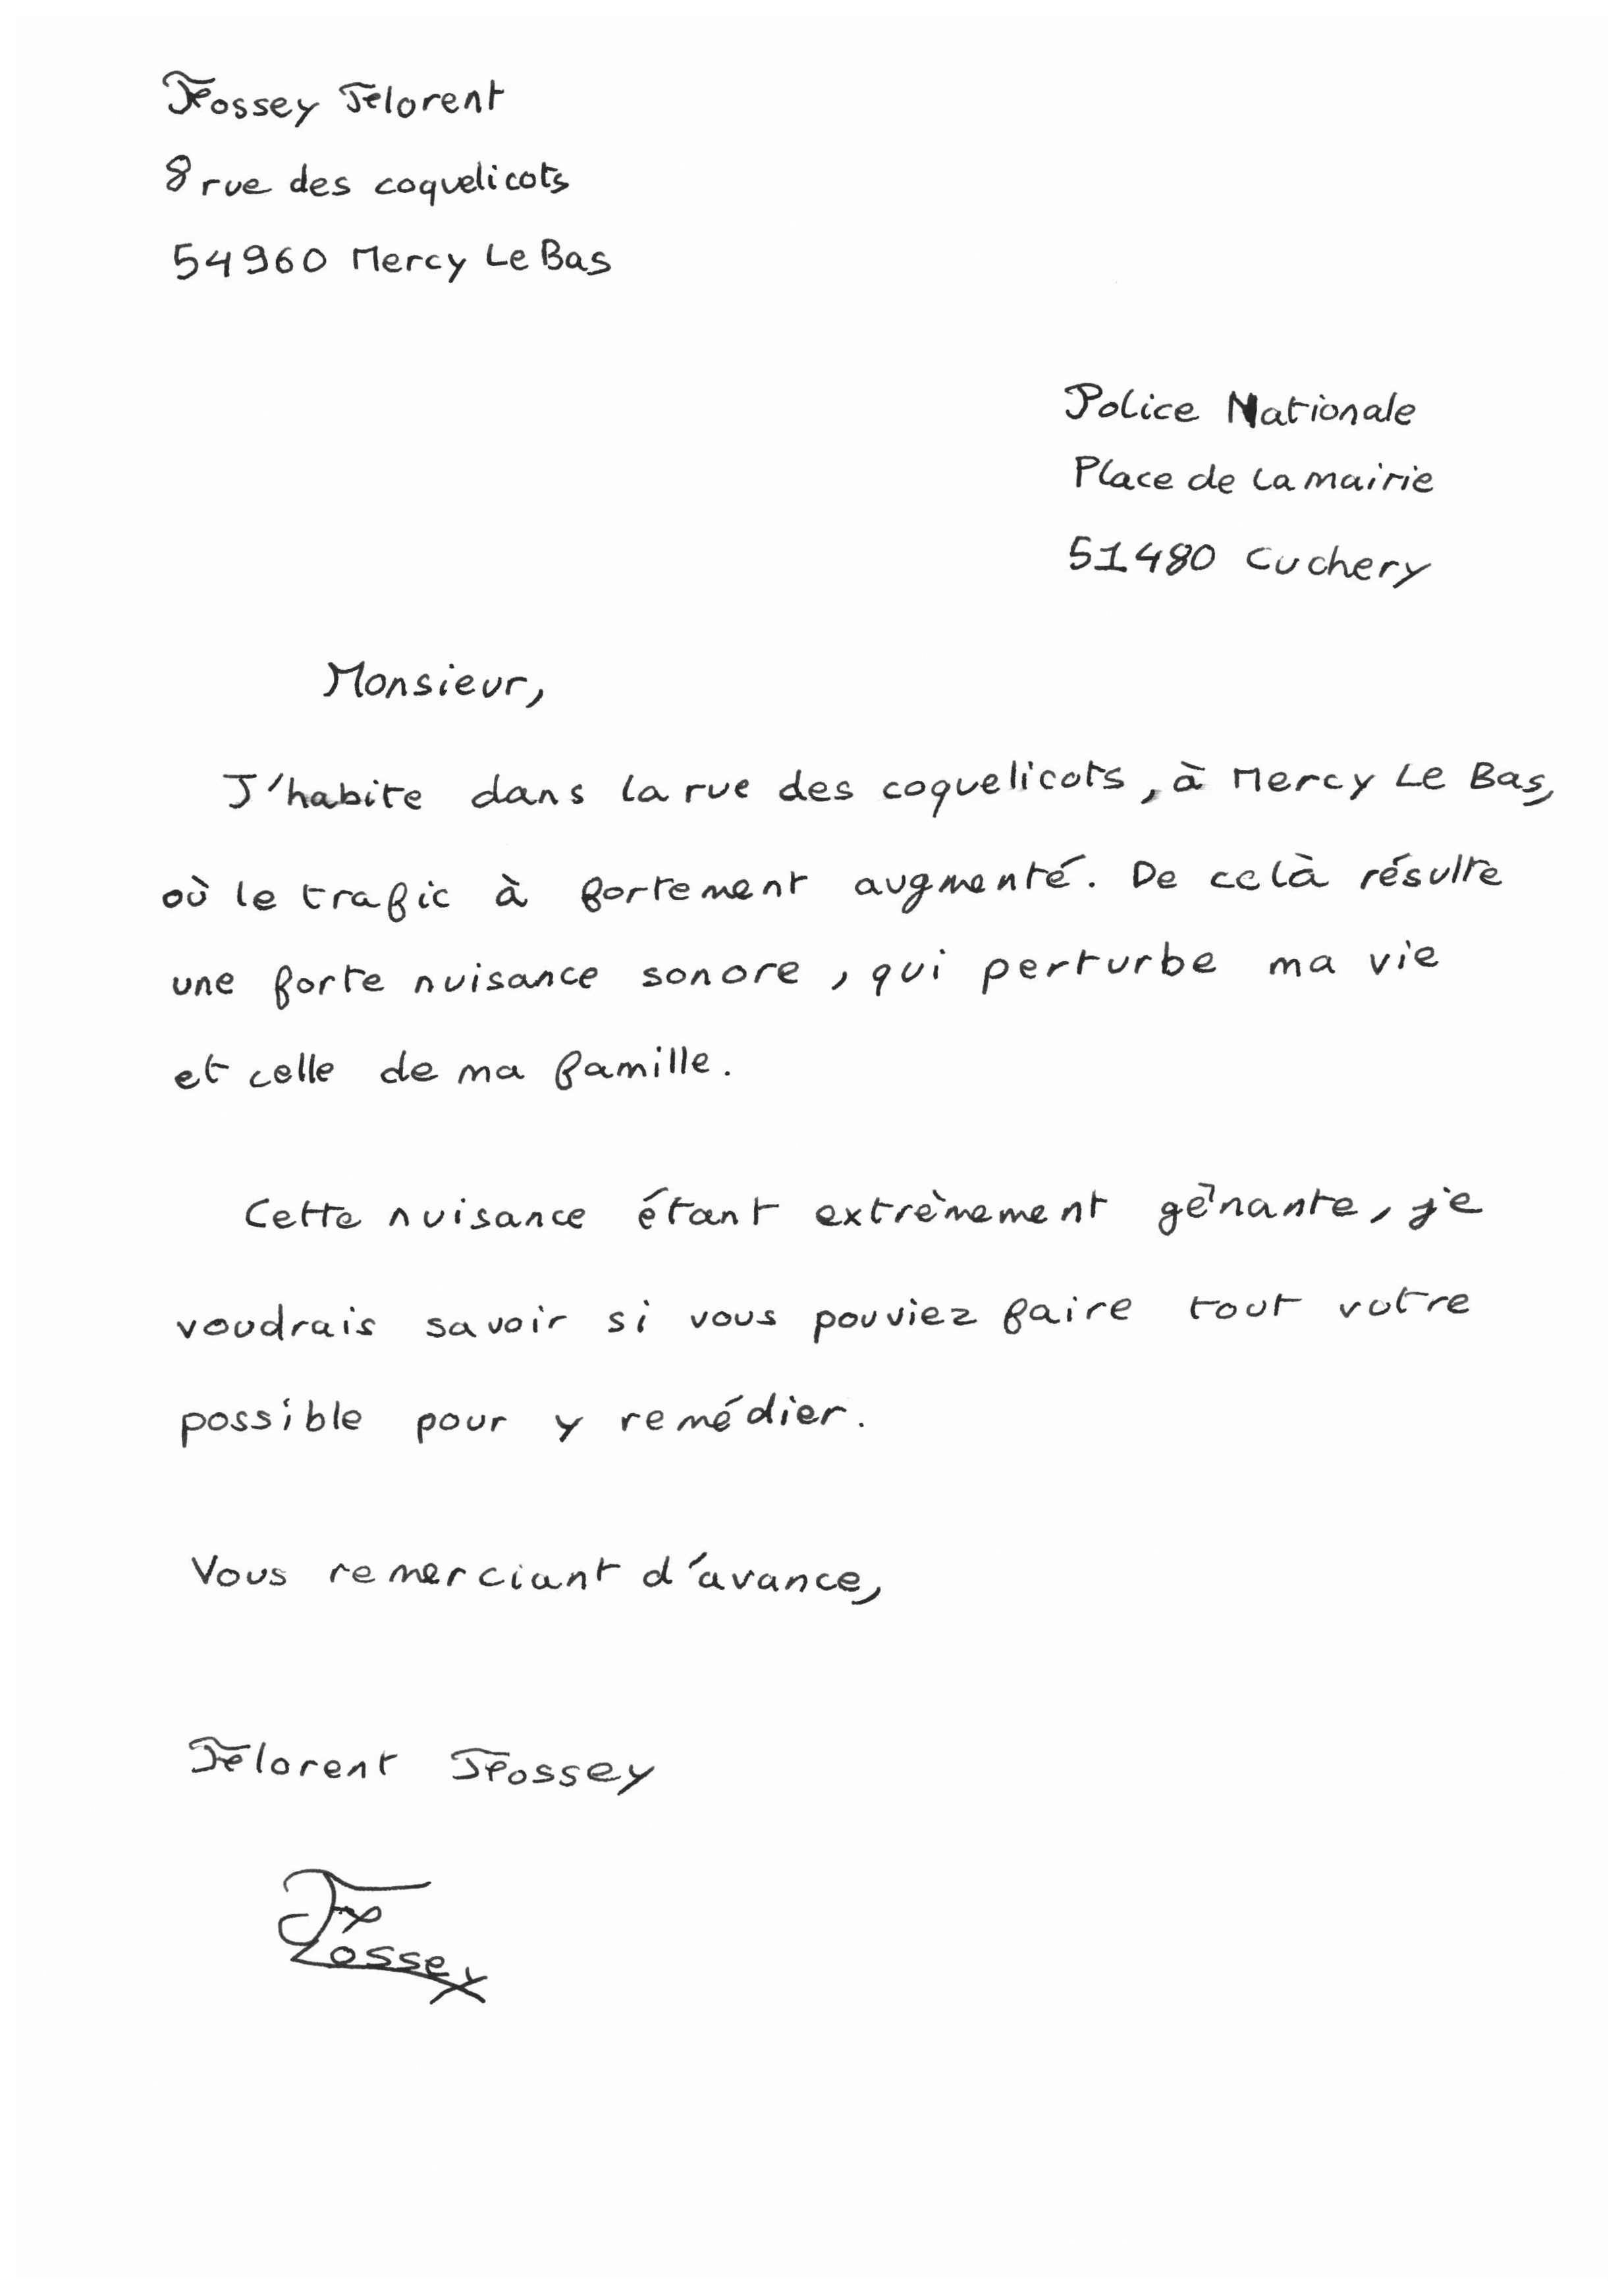 Fossey Florent
8 rue des coquelicots
54960 Mercy Le Bas
Police Nationale
Place de la mairie
51480 Cuchery
Monsieur,
J'habite dans la rue des coquelicots, à Mercy Le Bas,
où le trafic à fortement augmenté. De celà résulte
une forte nuisance sonore, qui perturbe ma vie
et celle de ma famille.
Cette nuisance étant extrèmement gênante, je
voudrais savoir si vous pouviez faire tout votre
possible pour y remédier.
Vous remerciant d'avance,
Florent Fossey
Fossey